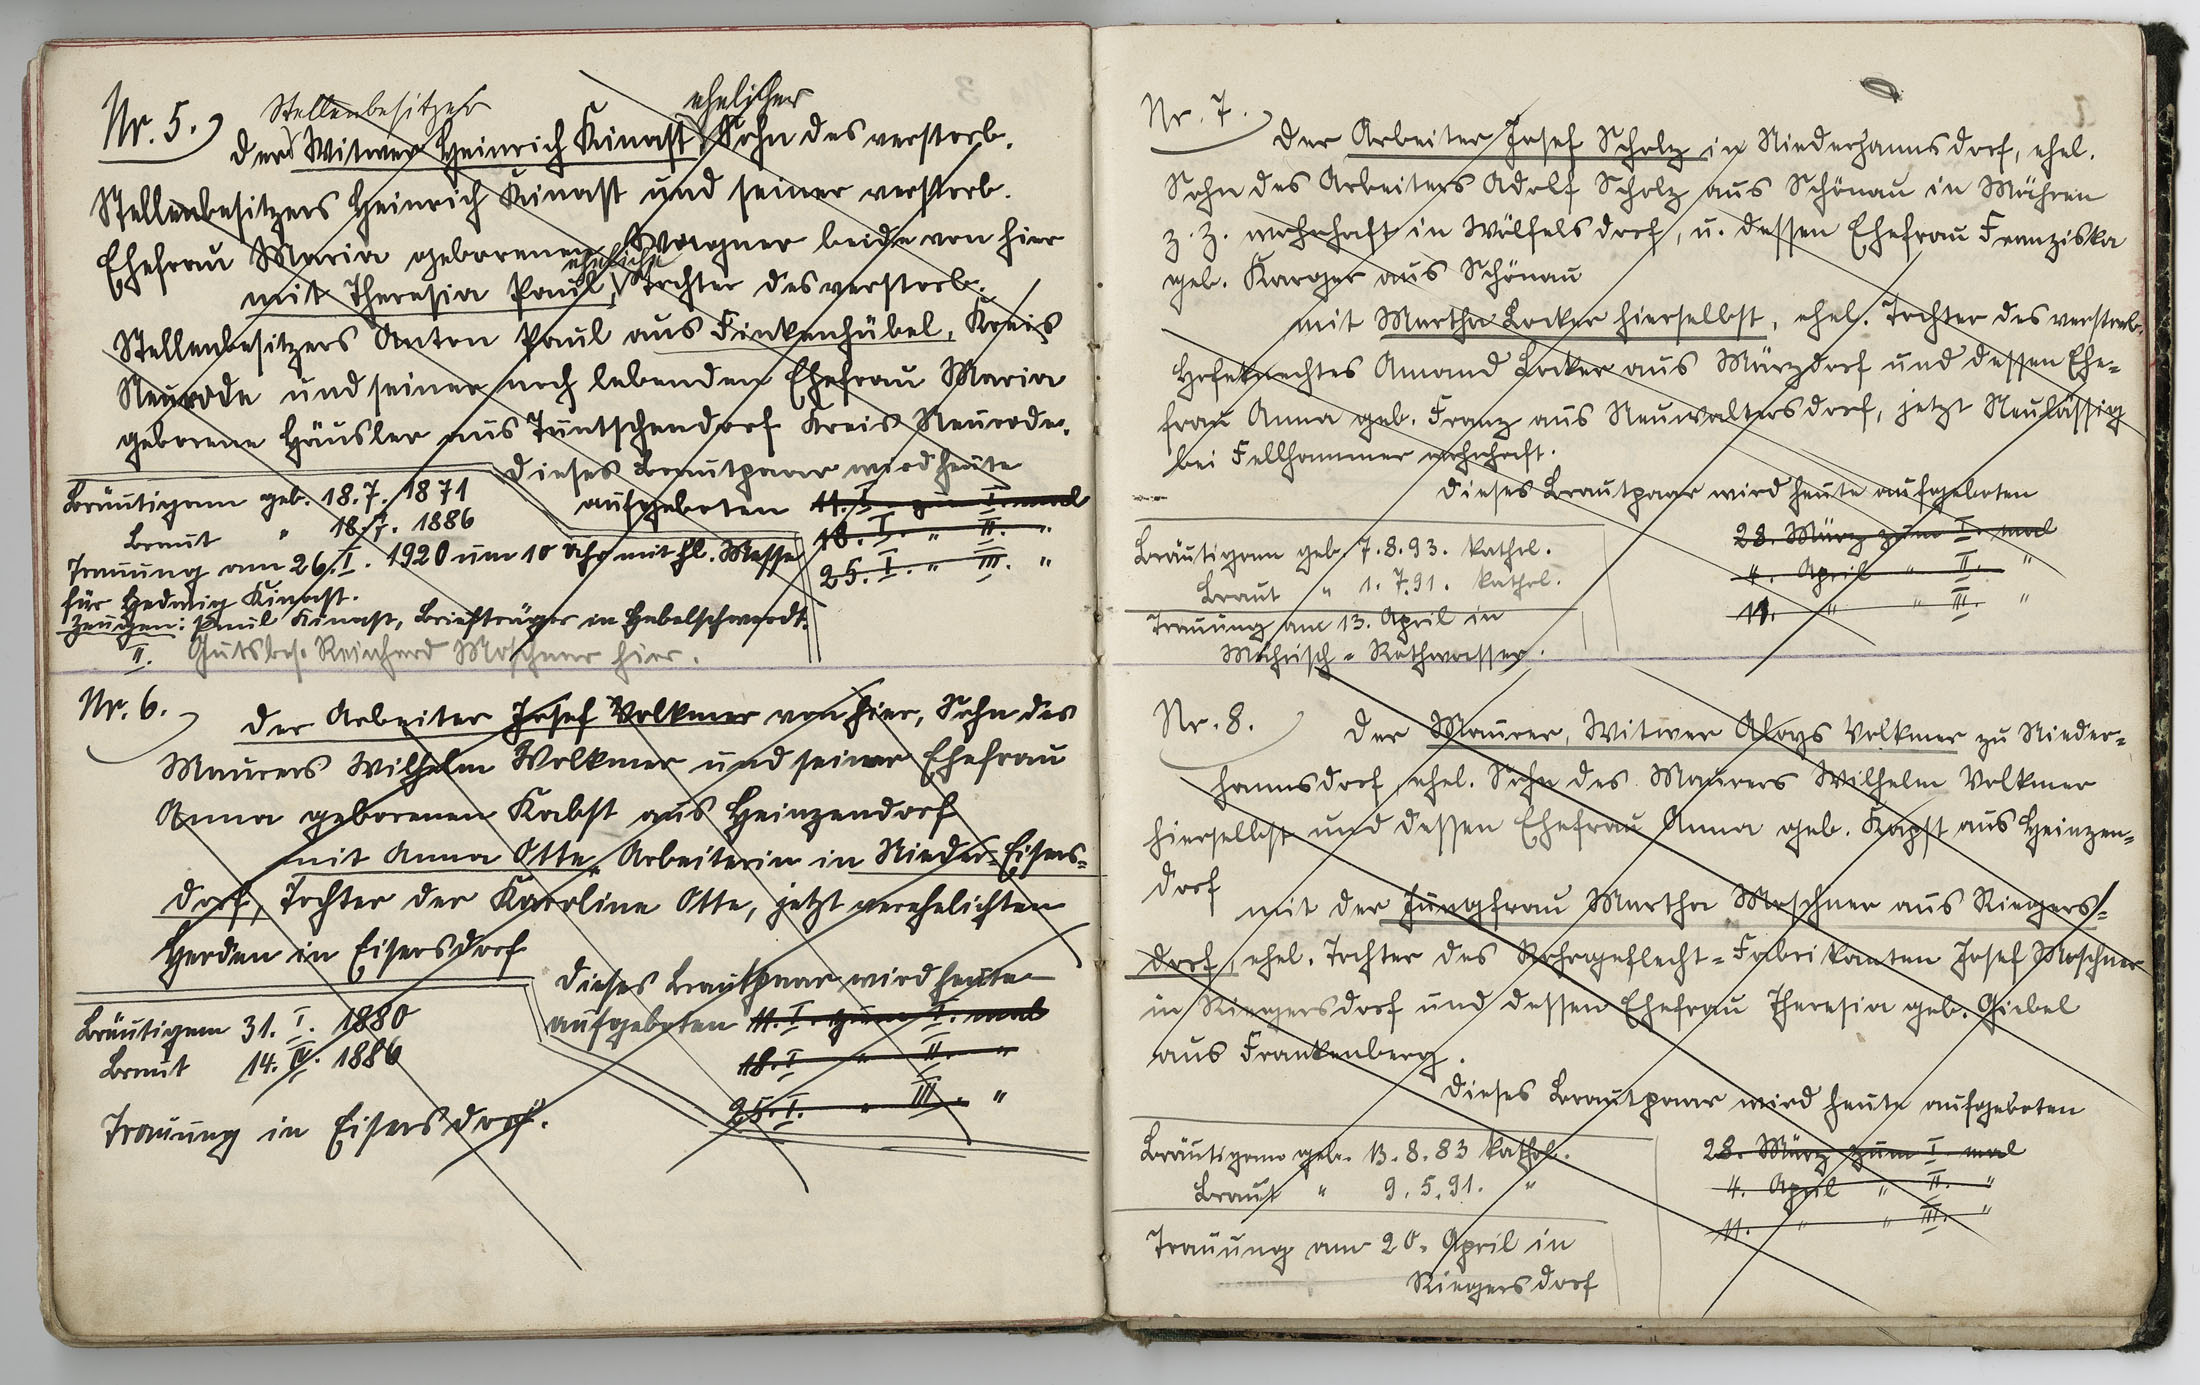 Nr. 5.
Stellenbesitzer ehelicher
Der Witwer Heinrich Kinast, Sohn des verstorb.
Stellenbesitzers Heinrich Kinast und seiner verstorb.
Ehefrau Maria geborenen Wagner beide von hier
eheliche
mit Theresia Paul, Tochter des verstorb.
Stellenbesitzers Anton Paul aus Finkenhübel, Kreis
Neurode und seiner noch lebenden Ehefrau Maria
geborene Häusler aus Tuntschendorf Kreis Neurode.
Dieses Brautpaar wird heute
aufgeboten 11. I. zum I. mal
18. I. " II. "
25. I. " III. "
Bräutigam geb. 18.7. 1871
Braut " 18.7. 1886
Trauung am 26. I. 1920 um 10 Uhr mit hl. Messe
für Hedwig Kinast.
Zeugen: Paul Kinast, Briefträger in Habelschwerdt.
II. Gutsbes. Reinhard Moschner hier.
Nr. 6.
Der Arbeiter Josef Volkmer von hier, Sohn des
Maurers Wilhelm Volkmer und seiner Ehefrau
Anna geborenen Kabst aus Heinzendorf
mit Anna Otte, Arbeiterin in Nieder-Eisers-
dorf, Tochter der Karoline Otte, jetzt verehelichten
Herden in Eisersdorf
Dieses Brautpaar wird heute
aufgeboten 11. I. zum I. mal
18. I. " II. "
25. I. " III. "
Bräutigam 31. I. 1880
Braut 14. IV. 1886
Trauung in Eisersdorf.
Nr. 7.
Der Arbeiter Josef Scholz in Niederhannsdorf, ehel.
Sohn des Arbeiters Adolf Scholz aus Schönau in Mähren
z. Z. wohnhaft in Wölfelsdorf, u. dessen Ehefrau Franziska
geb. Karger aus Schönau
mit Martha Locker hierselbst, ehel. Tochter des verstorb.
Hofeknechtes Amand Locker aus Märzdorf und dessen Ehe-
frau Anna geb. Franz aus Neuwaltersdorf, jetzt Neulässig
bei Fellhammer wohnhaft.
Dieses Brautpaar wird heute aufgeboten
28. März zum I. mal
4. April " II. "
11. " " III. "
Bräutigam geb. 7.8.93. kathol.
Braut " 1.7.91. kathol.
Trauung am 13. April in
Mährisch-Rothwasser.
Nr. 8.
Der Maurer, Witwer Aloys Volkmer zu Nieder-
hannsdorf, ehel. Sohn des Maurers Wilhelm Volkmer
hierselbst und dessen Ehefrau Anna geb. Kapst aus Heinzen-
dorf
mit der Jungfrau Martha Moschner aus Riegers-
dorf, ehel. Tochter des Rohrgeflecht-Fabrikanten Josef Moschner
in Riegersdorf und dessen Ehefrau Theresia geb. Giebel
aus Frankenberg.
Dieses Brautpaar wird heute aufgeboten
28. März zum I. mal
4. April " II. "
11. " " III. "
Bräutigam geb. 13.8.83 kathol.
Braut " 9.5.91. "
Trauung am 20. April in
Riegersdorf